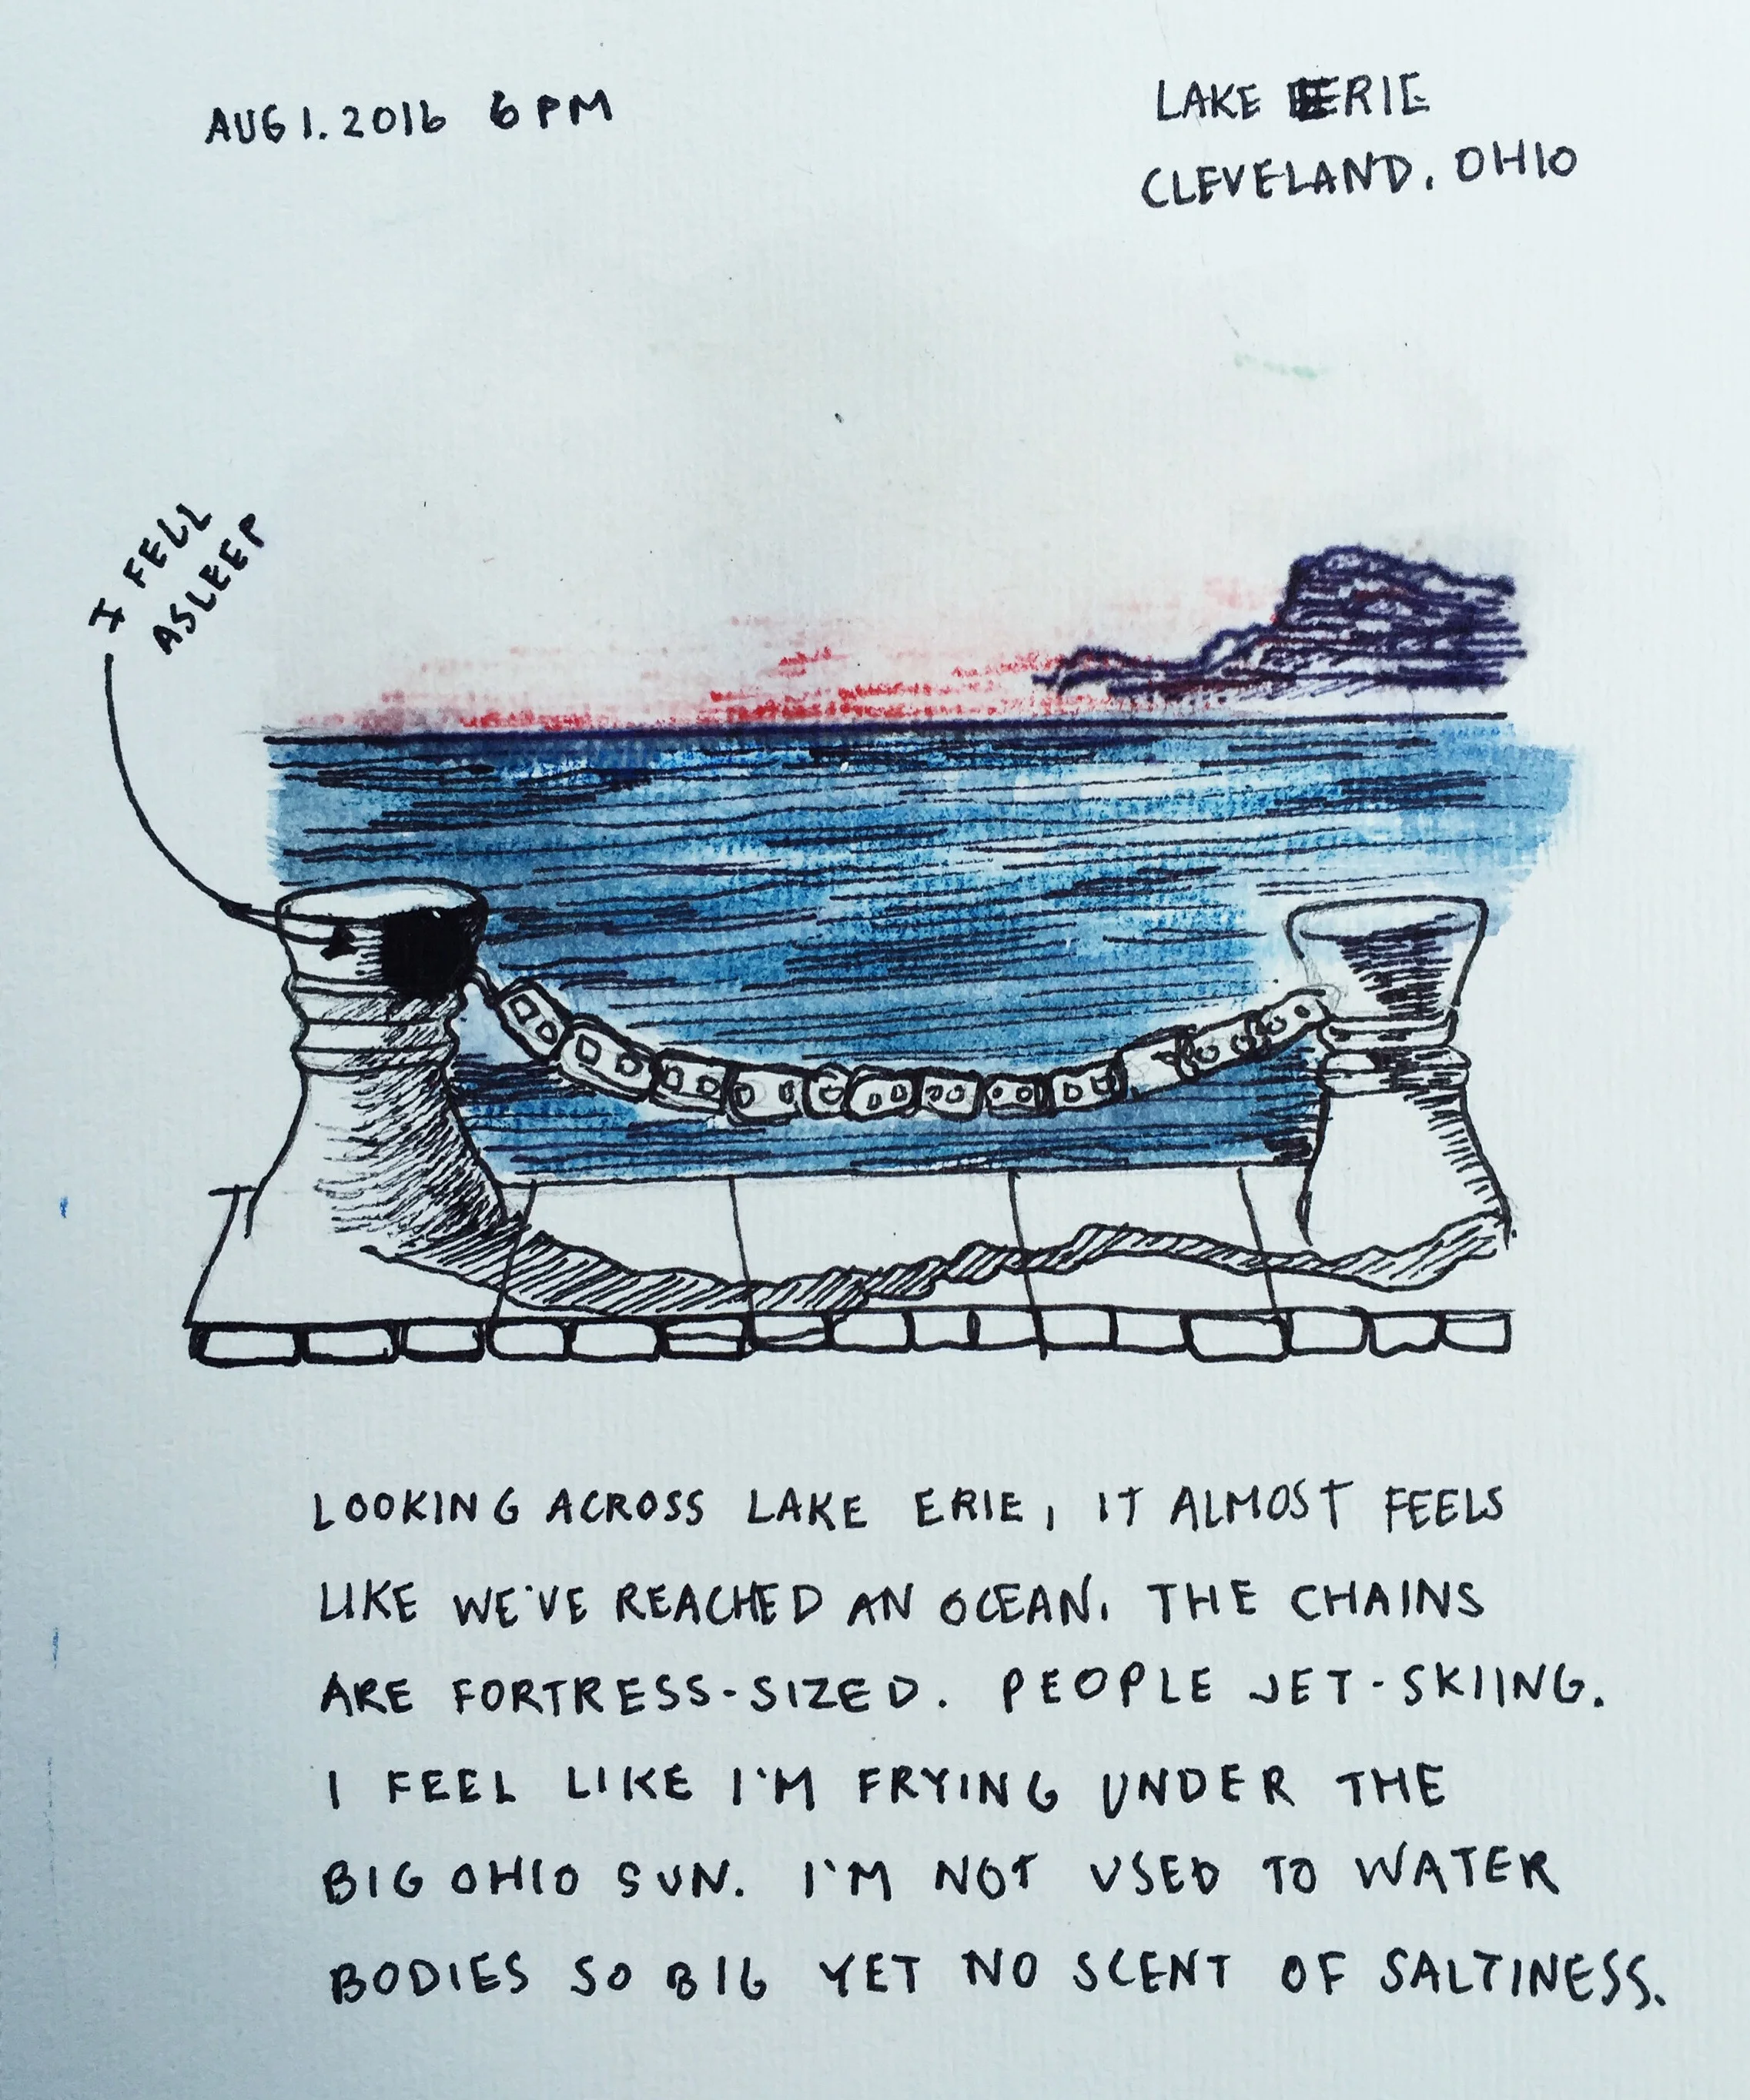 AUG 1. 2016 6 PM
LAKE ERIE
CLEVELAND, OHIO
I FELL
ASLEEP
LOOKING ACROSS LAKE ERIE, IT ALMOST FEELS
LIKE WE'VE REACHED AN OCEAN. THE CHAINS
ARE FORTRESS-SIZED. PEOPLE JET-SKIING.
I FEEL LIKE I'M FRYING UNDER THE
BIG OHIO SUN. I'M NOT USED TO WATER
BODIES SO BIG YET NO SCENT OF SALTINESS.